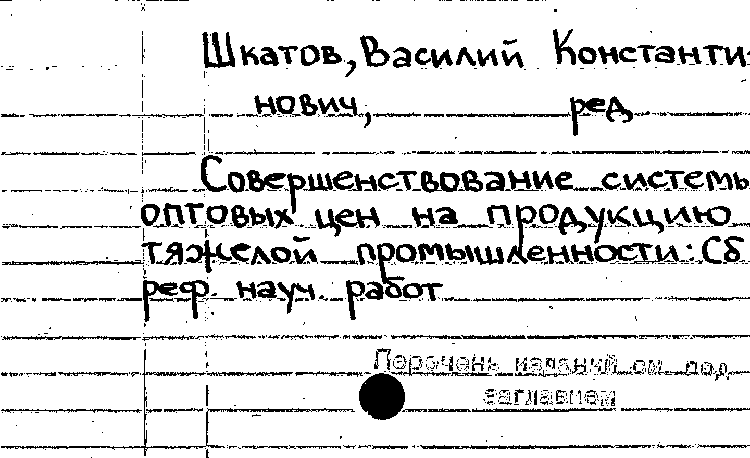 Шкатов, Василий Константи-
нович, ред
Совершенствование системы
оптовых цен на продукцию
тяжелой промышленности: Сб
реф. науч. работ
Перечень изданий см. под
заглавием